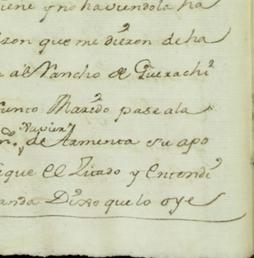 tiene y no haviendola ha
zon que me dieron de ha
a al Rancho de Guerachi
Marido pase a la
Xavier
de Armenta su apo
que El Zitado y Entendi
anda Dixo que lo oye